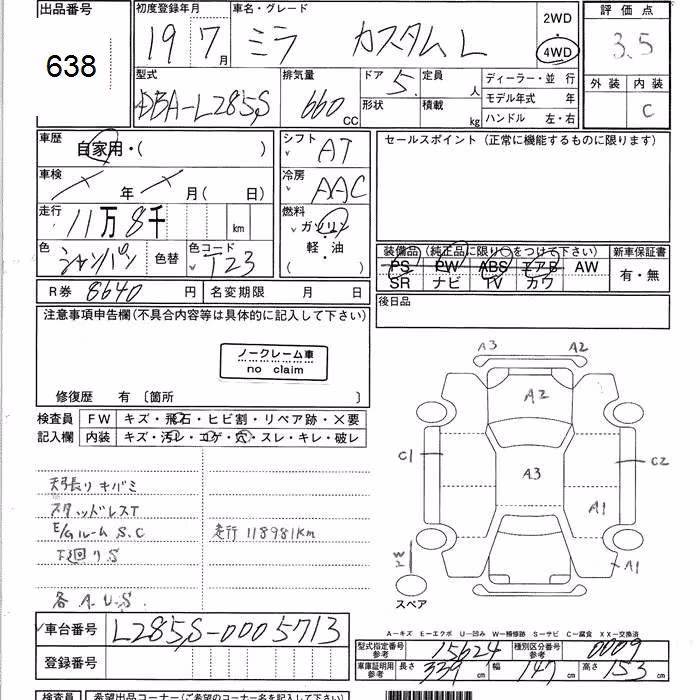 出品番号
638
初度登録年月
19 7月
車名・グレード
ミラ カスタム L
2WD
4WD
評価点
3.5
外装 内装
C
型式
DBA-L285S
排気量
660cc
ドア
5
形状
定員 人
積載 kg
ディーラー・並行
モデル年式 年
ハンドル 左・右
車歴
自家用・( )
車検
年 月( 日)
走行
11万8千 km
色
シャンパン
色替
色コード
T23
シフト
AT
冷房
AAC
燃料
ガソリン
軽・油
( )
セールスポイント (正常に機能するものに限ります)
装備品 (純正品に限り○をつけて下さい)
PS PW ABS エアB AW
SR ナビ TV カワ
新車保証書
有・無
後日品
R券 8640円
名変期限 月 日
注意事項申告欄(不具合内容等は具体的に記入して下さい)
ノークレーム車
no claim
修復歴 有〔箇所 〕
検査員
記入欄
FW キズ・飛石・ヒビ割・リペア跡・×要
内装 キズ・汚レ・コゲ・穴・スレ・キレ・破レ
天張りキバミ
スタッドレスT
E/Gルーム S.C
走行 118981km
下廻り S
各 A.U.S.
A3 A2
A2
C1 A3 C2
A1
A1
W
スペア
A-キズ E-エクボ U-凹み W-補修跡 S-サビ C-腐食 XX-交換済
車台番号
L285S-0005713
登録番号
型式指定番号
参考
15624
種別区分番号
参考
0009
車庫証明用
参考
長さ 339cm 幅 147cm 高さ 153cm
検査員
希望出品コーナー(ご希望のコーナー名を記入して下さい)